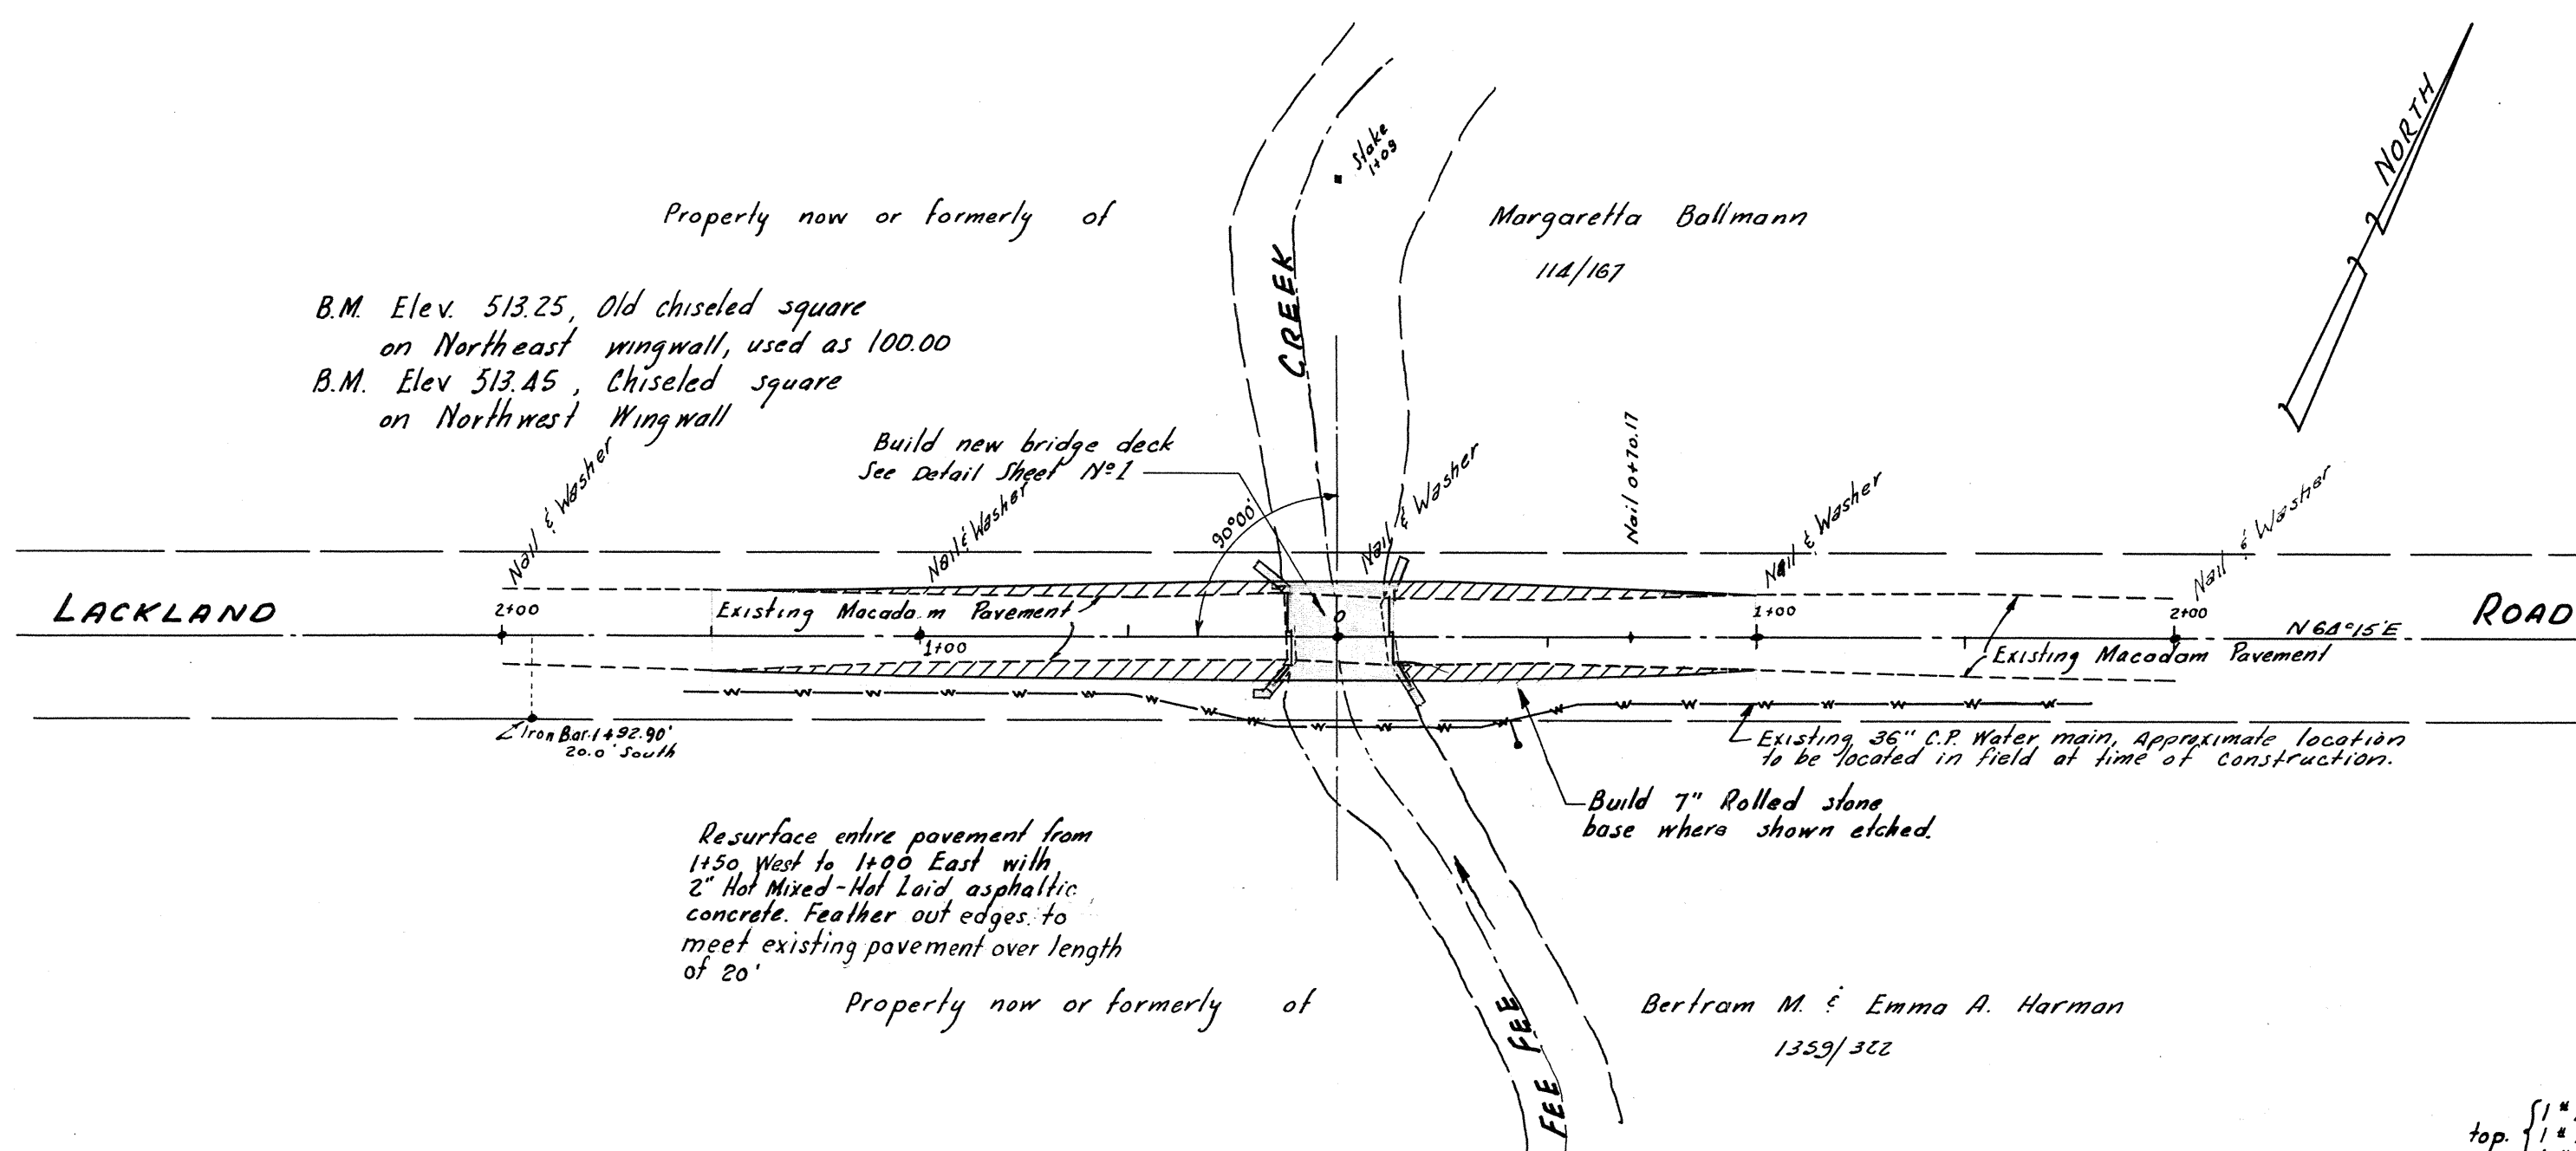 NORTH
Stake
1+09
Property now or formerly of
Margaretta Ballmann
114/167
CREEK
B.M. Elev. 513.25, Old chiseled square
on Northeast wingwall, used as 100.00
B.M. Elev 513.45, Chiseled square
on Northwest Wingwall
Build new bridge deck
See Detail Sheet Nº1
Nail & Washer
Nail & Washer
90°00'
Nail & Washer
Nail 0+70.17
Nail & Washer
Nail & Washer
LACKLAND
2+00
Existing Macadam Pavement
1+00
0
1+00
2+00
N 64°15'E
ROAD
Existing Macadam Pavement
W W W W W W W W W W W W W W W W W W W W
Iron Bar 1+92.90'
20.0' South
Existing 36" C.P. Water main, Approximate location
to be located in field at time of construction.
Build 7" Rolled stone
base where shown etched.
Resurface entire pavement from
1+50 West to 1+00 East with
2" Hot Mixed-Hot Laid asphaltic
concrete. Feather out edges to
meet existing pavement over length
of 20'
Property now or formerly of
Bertram M. & Emma A. Harman
1359/322
FEE FEE
top. { 1 #
1 #